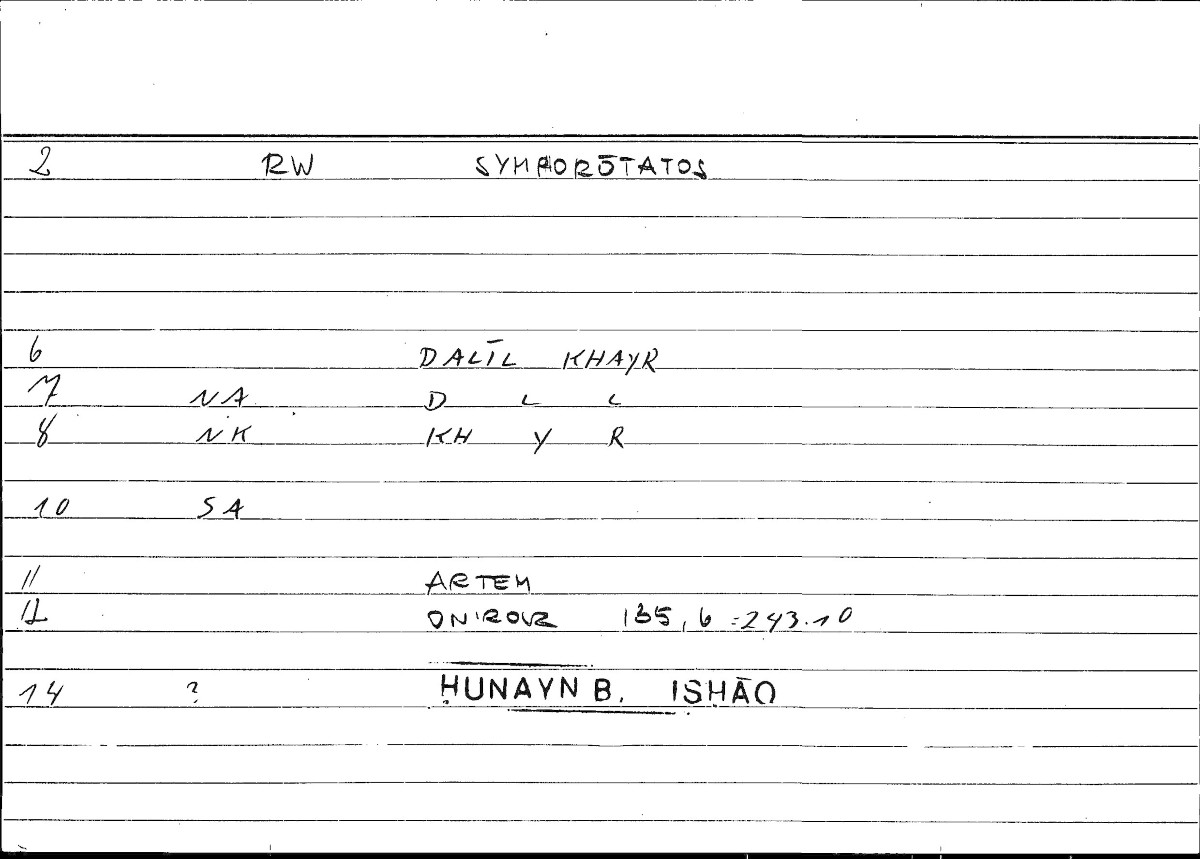 2 RW SYMPHORŌTATOS
6 DALĪL KHAYR
7 NA D L L
8 NK KH Y R
10 SA
11 ARTEM
12 ONIROCR 135,6 = 243.10
14 ? ḤUNAYN B. ISḤĀQ